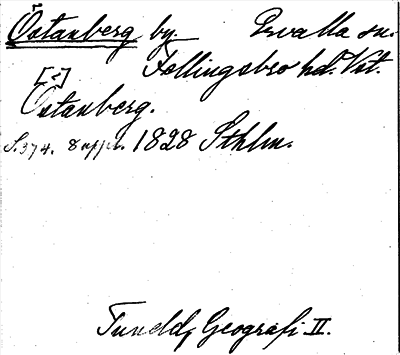 Östanberg by. Ervalla sn.
Fellingsbro hd. Vst.
[-]
Östanberg.
S. 374. 8 uppl. 1828 Sthlm.
Tuneld, Geografi II.